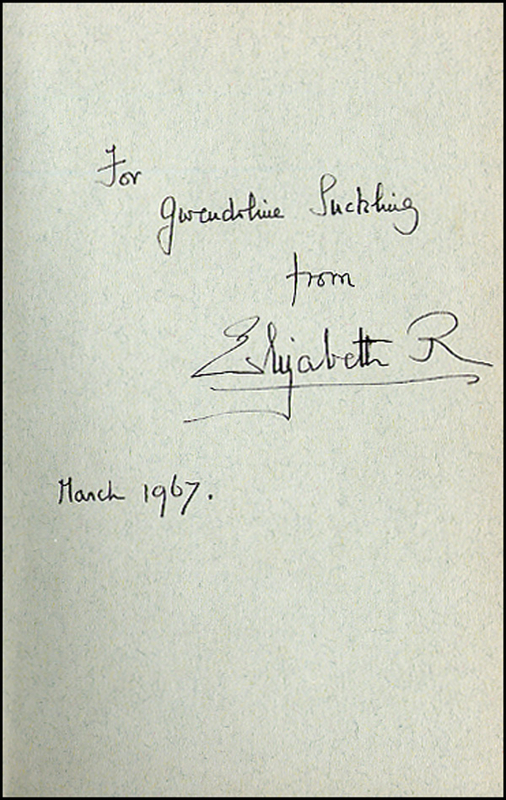 For
Gwendoline Suckling
from
Elizabeth R
March 1967.